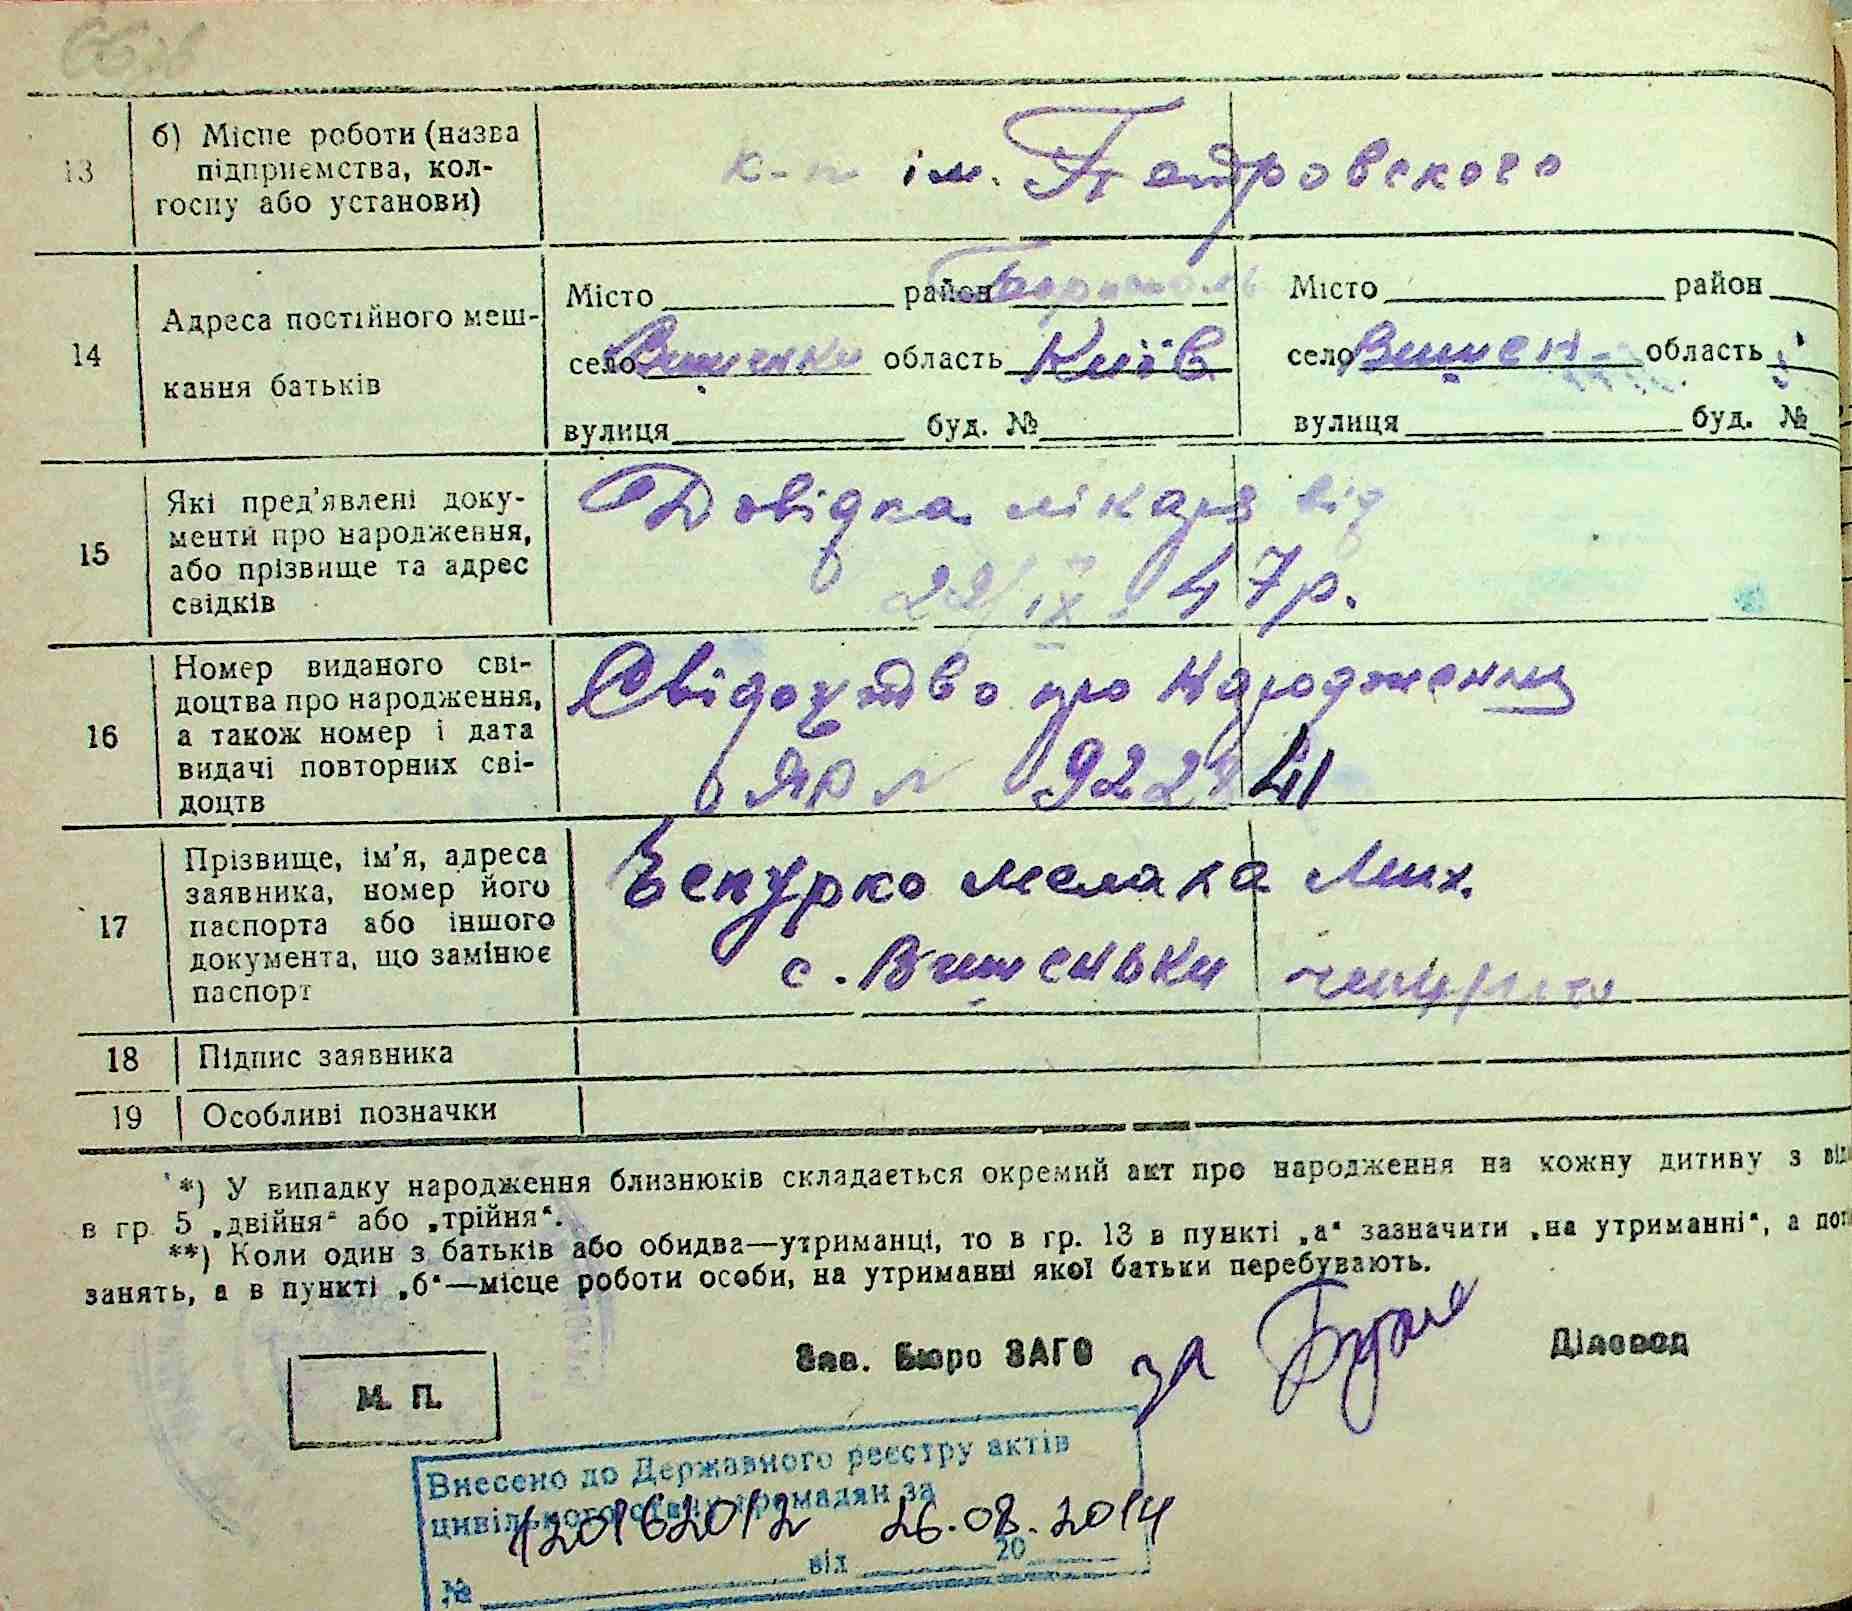 13
б) Місце роботи (назва
підприємства, кол-
госпу або установи)
к-п ім. Петровского
14
Адреса постійного меш-
кання батьків
Місто район Бориспіль
село Вишеньки область Київ
вулиця буд. №
Місто район
село Вишеньки область
вулиця буд. №
15
Які пред'явлені доку-
менти про народження,
або прізвище та адрес
свідків
Довідка лікаря від
22/IX 47р.
16
Номер виданого сві-
доцтва про народження,
а також номер і дата
видачі повторних сві-
доцтв
Свідоцтво про народження
17
Прізвище, ім'я, адреса
заявника, номер його
паспорта або іншого
документа, що замінює
паспорт
Чепурко Мелана Мих.
с. Вишеньки
18
Підпис заявника
19
Особливі позначки
*) У випадку народження близнюків складається окремий акт про народження на кожну дитину з від
в гр. 5 „двійня“ або „трійня“.
**) Коли один з батьків або обидва—утриманці, то в гр. 13 в пункті „а“ зазначити „на утриманні“, а пот
занять, а в пункті „б“—місце роботи особи, на утриманні якої батьки перебувають.
Зав. Бюро ЗАГС за Діловод
М. П.
Внесено до Державного реєстру актів
цивільного стану громадян за
120162012 26.08.2014
№ від 20